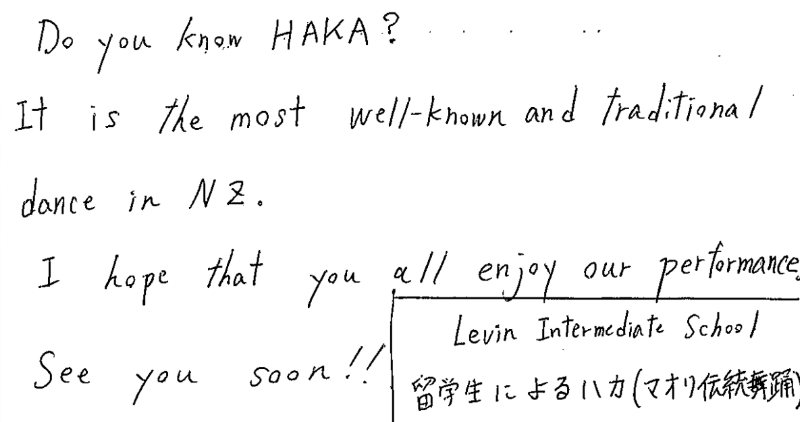 Do you know HAKA?
It is the most well-known and traditional
dance in NZ.
I hope that you all enjoy our performance.
See you soon!!
Levin Intermediate School
留学生によるハカ(マオリ伝統舞踊)